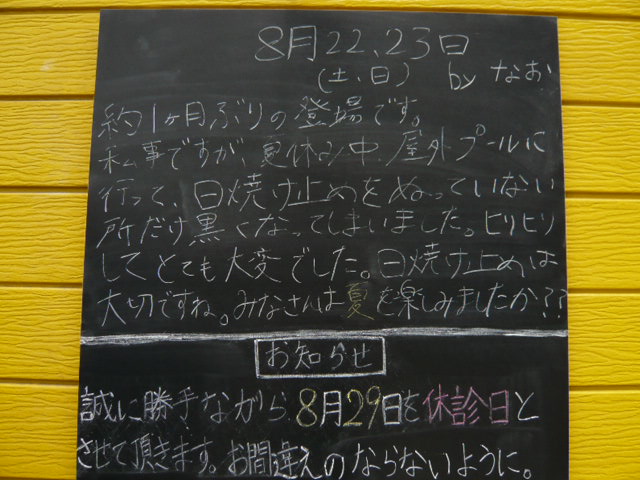 8月22、23日
(土、日) by なお
約1ヶ月ぶりの登場です。
私事ですが、夏休み中、屋外プールに
行って、日焼け止めをぬっていない
所だけ黒くなってしまいました。ヒリヒリ
してとても大変でした。日焼け止めは
大切ですね。みなさんは夏を楽しみましたか??
お知らせ
誠に勝手ながら、8月29日を休診日と
させて頂きます。お間違えのならないように。